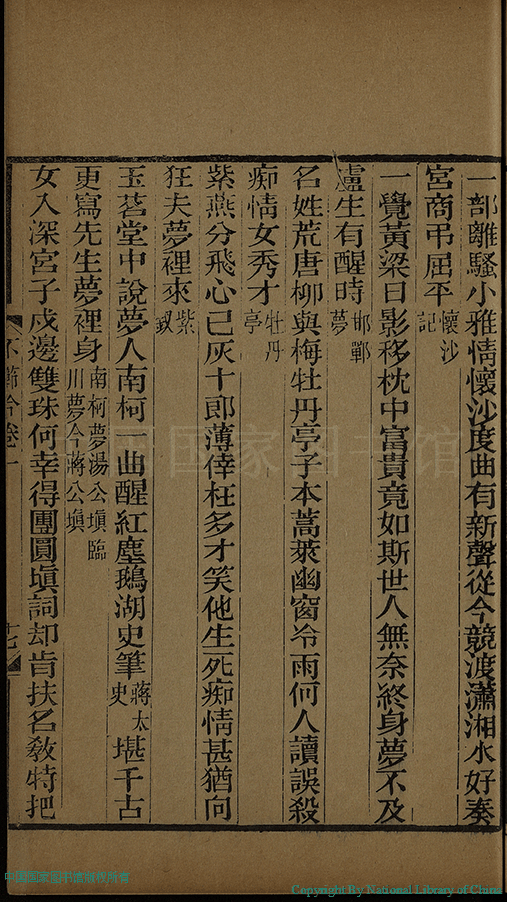 一部離騷小雅情懷沙度曲有新聲從今競渡瀟湘水好奏
宮商弔屈平懷沙記
一覺黃梁日影移枕中富貴竟如斯世人無奈終身夢不及
盧生有醒時邯鄲夢
名姓荒唐柳與梅牡丹亭子本蒿萊幽窗冷雨何人讀誤殺
痴情女秀才牡丹亭
紫燕分飛心已灰十郎薄倖枉多才笑他生死痴情甚猶向
狂夫夢裡來紫釵
玉茗堂中說夢人南柯一曲醒紅塵鵝湖史筆蔣太史堪千古
更寫先生夢裡身南柯夢湯公塡臨川夢今蔣公塡
女入深宮子戍邊雙珠何幸得團圓塡詞却肯扶名敎特把
卷一
十七
中国国家图书馆
Copyright By National Library of China